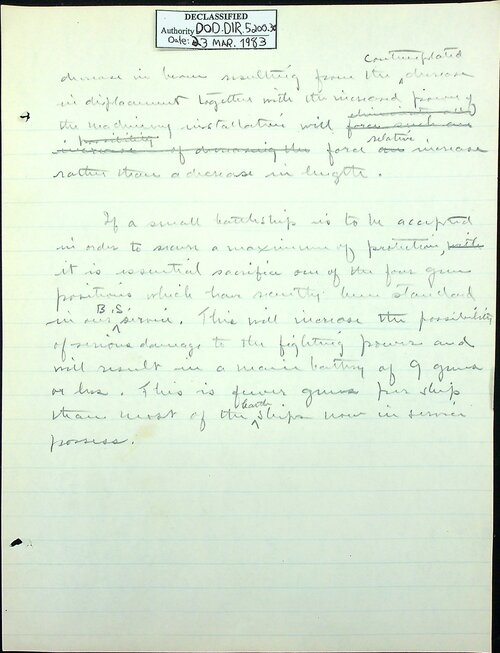 DECLASSIFIED
Authority DOD.DIR.5200.30
Date: 23 MAR. 1983
contemplated
decrease in beam resulting from the decrease
in displacement together with the increased power of
the machinery installation will force such an
possibility relative
increase of decreasing the force an increase
rather than a decrease in length.
If a small battleship is to be accepted
in order to secure a maximum of protection, with
it is essential sacrifice one of the four gun
positions which have recently been standard
B.S
in our service. This will increase the possibility
of serious damage to the fighting power and
will result in a main battery of 9 guns
or less. This is fewer guns per ship
battle
than most of the ships now in service
possess.